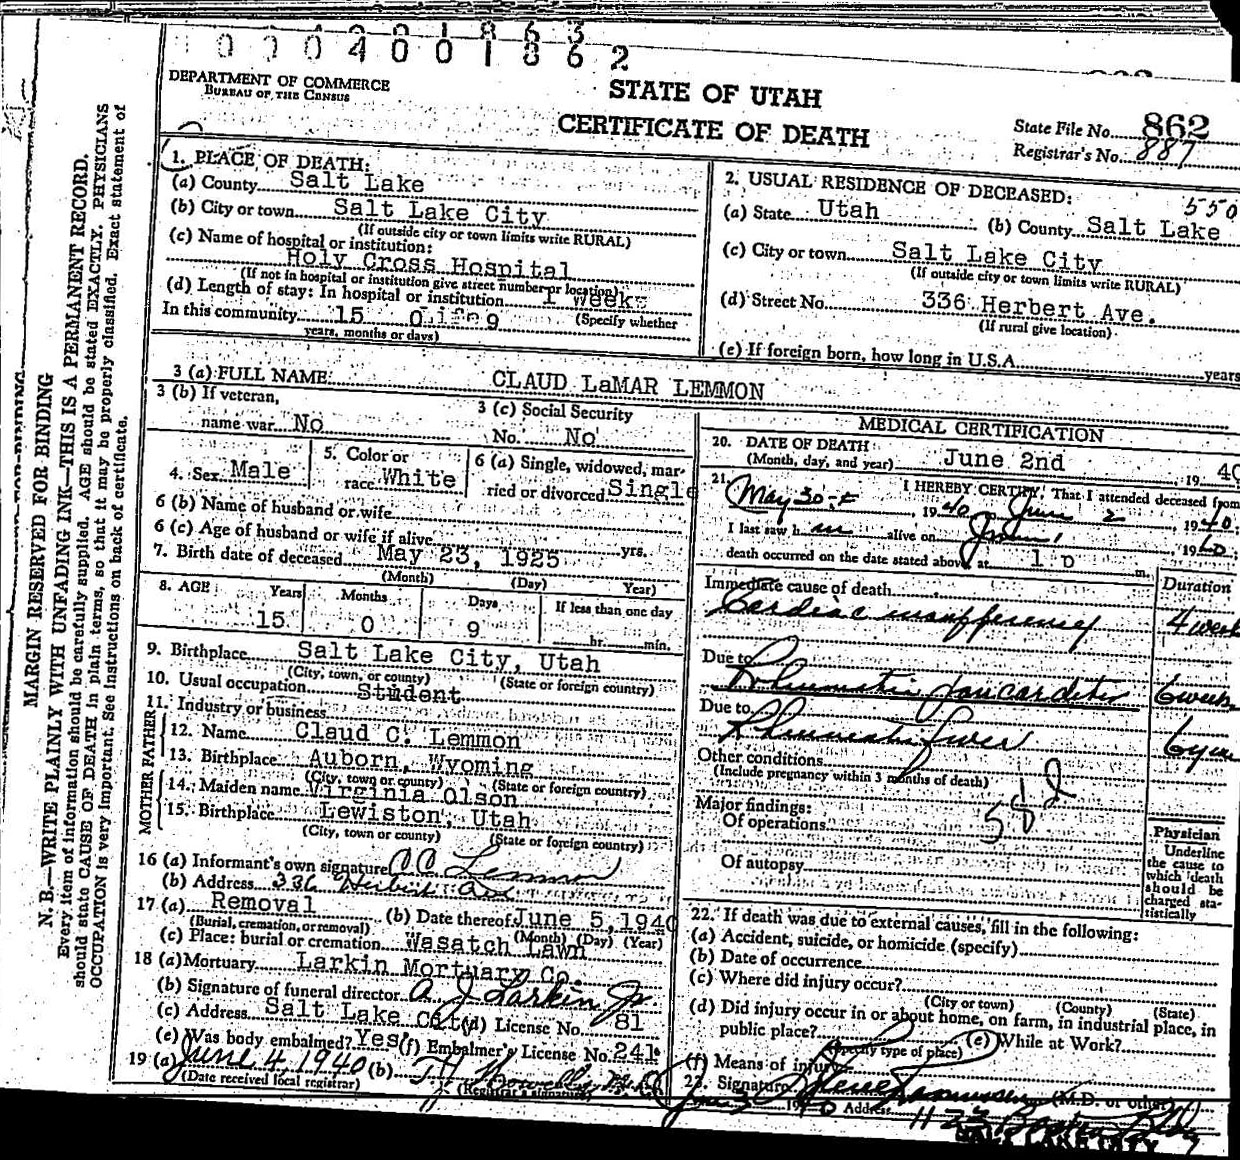 0 0 0 4 0 0 1 8 6 2
DEPARTMENT OF COMMERCE
BUREAU OF THE CENSUS
STATE OF UTAH
CERTIFICATE OF DEATH
State File No. 862
Registrar's No. 887
1. PLACE OF DEATH:
(a) County Salt Lake
(b) City or town Salt Lake City
(If outside city or town limits write RURAL)
(c) Name of hospital or institution:
Holy Cross Hospital
(If not in hospital or institution give street number or location)
(d) Length of stay: In hospital or institution 1 Weeks
(Specify whether
In this community 15 0 9
years, months or days)
2. USUAL RESIDENCE OF DECEASED:
550
(a) State Utah (b) County Salt Lake
(c) City or town Salt Lake City
(If outside city or town limits write RURAL)
(d) Street No. 336 Herbert Ave.
(If rural give location)
(e) If foreign born, how long in U.S.A. years
3 (a) FULL NAME: CLAUD LaMAR LEMMON
3 (b) If veteran,
name war No
3 (c) Social Security
No. No
4. Sex Male
5. Color or
race White
6 (a) Single, widowed, mar-
ried or divorced Single
6 (b) Name of husband or wife
6 (c) Age of husband or wife if alive yrs.
7. Birth date of deceased May 23, 1925
(Month) (Day) Year)
8. AGE Years Months Days If less than one day
15 0 9 hr. min.
9. Birthplace Salt Lake City, Utah
(City, town, or county) (State or foreign country)
10. Usual occupation Student
11. Industry or business
FATHER
12. Name Claud C. Lemmon
13. Birthplace Auborn, Wyoming
(City, town or county) (State or foreign country)
MOTHER
14. Maiden name Virginia Olson
15. Birthplace Lewiston, Utah
(City, town or county) (State or foreign country)
16 (a) Informant's own signature C C Lemmon
(b) Address 336 Herbert Ave
17 (a) Removal (b) Date thereof June 5, 1940
(Burial, cremation, or removal) (Month) (Day) (Year)
(c) Place: burial or cremation Wasatch Lawn
18 (a) Mortuary Larkin Mortuary Co
(b) Signature of funeral director A J Larkin Jr
(c) Address Salt Lake City (d) License No. 81
(e) Was body embalmed? Yes (f) Embalmer's License No. 241
19 (a) June 4, 1940 (b)
(Date received local registrar) (Registrar's signature)
MEDICAL CERTIFICATION
20. DATE OF DEATH
(Month, day, and year) June 2nd 19 40
21. I HEREBY CERTIFY, That I attended deceased from
May 30 1940 June 2, 1940.
I last saw h im alive on June 1 1940.
death occurred on the date stated above, at 1 p m.
Immediate cause of death Duration
Cardiac insufficiency 4 weeks
Due to
Rheumatic pancarditis 6 weeks
Due to
Rheumatic fever 6 years
Other conditions
(Include pregnancy within 3 months of death)
58
Major findings:
Of operations
Of autopsy
Physician
Underline
the cause to
which death
should be
charged sta-
tistically
22. If death was due to external causes, fill in the following:
(a) Accident, suicide, or homicide (specify)
(b) Date of occurrence
(c) Where did injury occur?
(City or town) (County) (State)
(d) Did injury occur in or about home, on farm, in industrial place, in
public place? (e) While at Work?
(Specify type of place)
(f) Means of injury
23. Signature (M.D. or other)
June 3 1940 Address
SALT LAKE CITY
MARGIN RESERVED FOR BINDING
N. B.—WRITE PLAINLY WITH UNFADING INK—THIS IS A PERMANENT RECORD.
Every item of information should be carefully supplied. AGE should be stated EXACTLY. PHYSICIANS
should state CAUSE OF DEATH in plain terms, so that it may be properly classified. Exact statement of
OCCUPATION is very important. See instructions on back of certificate.